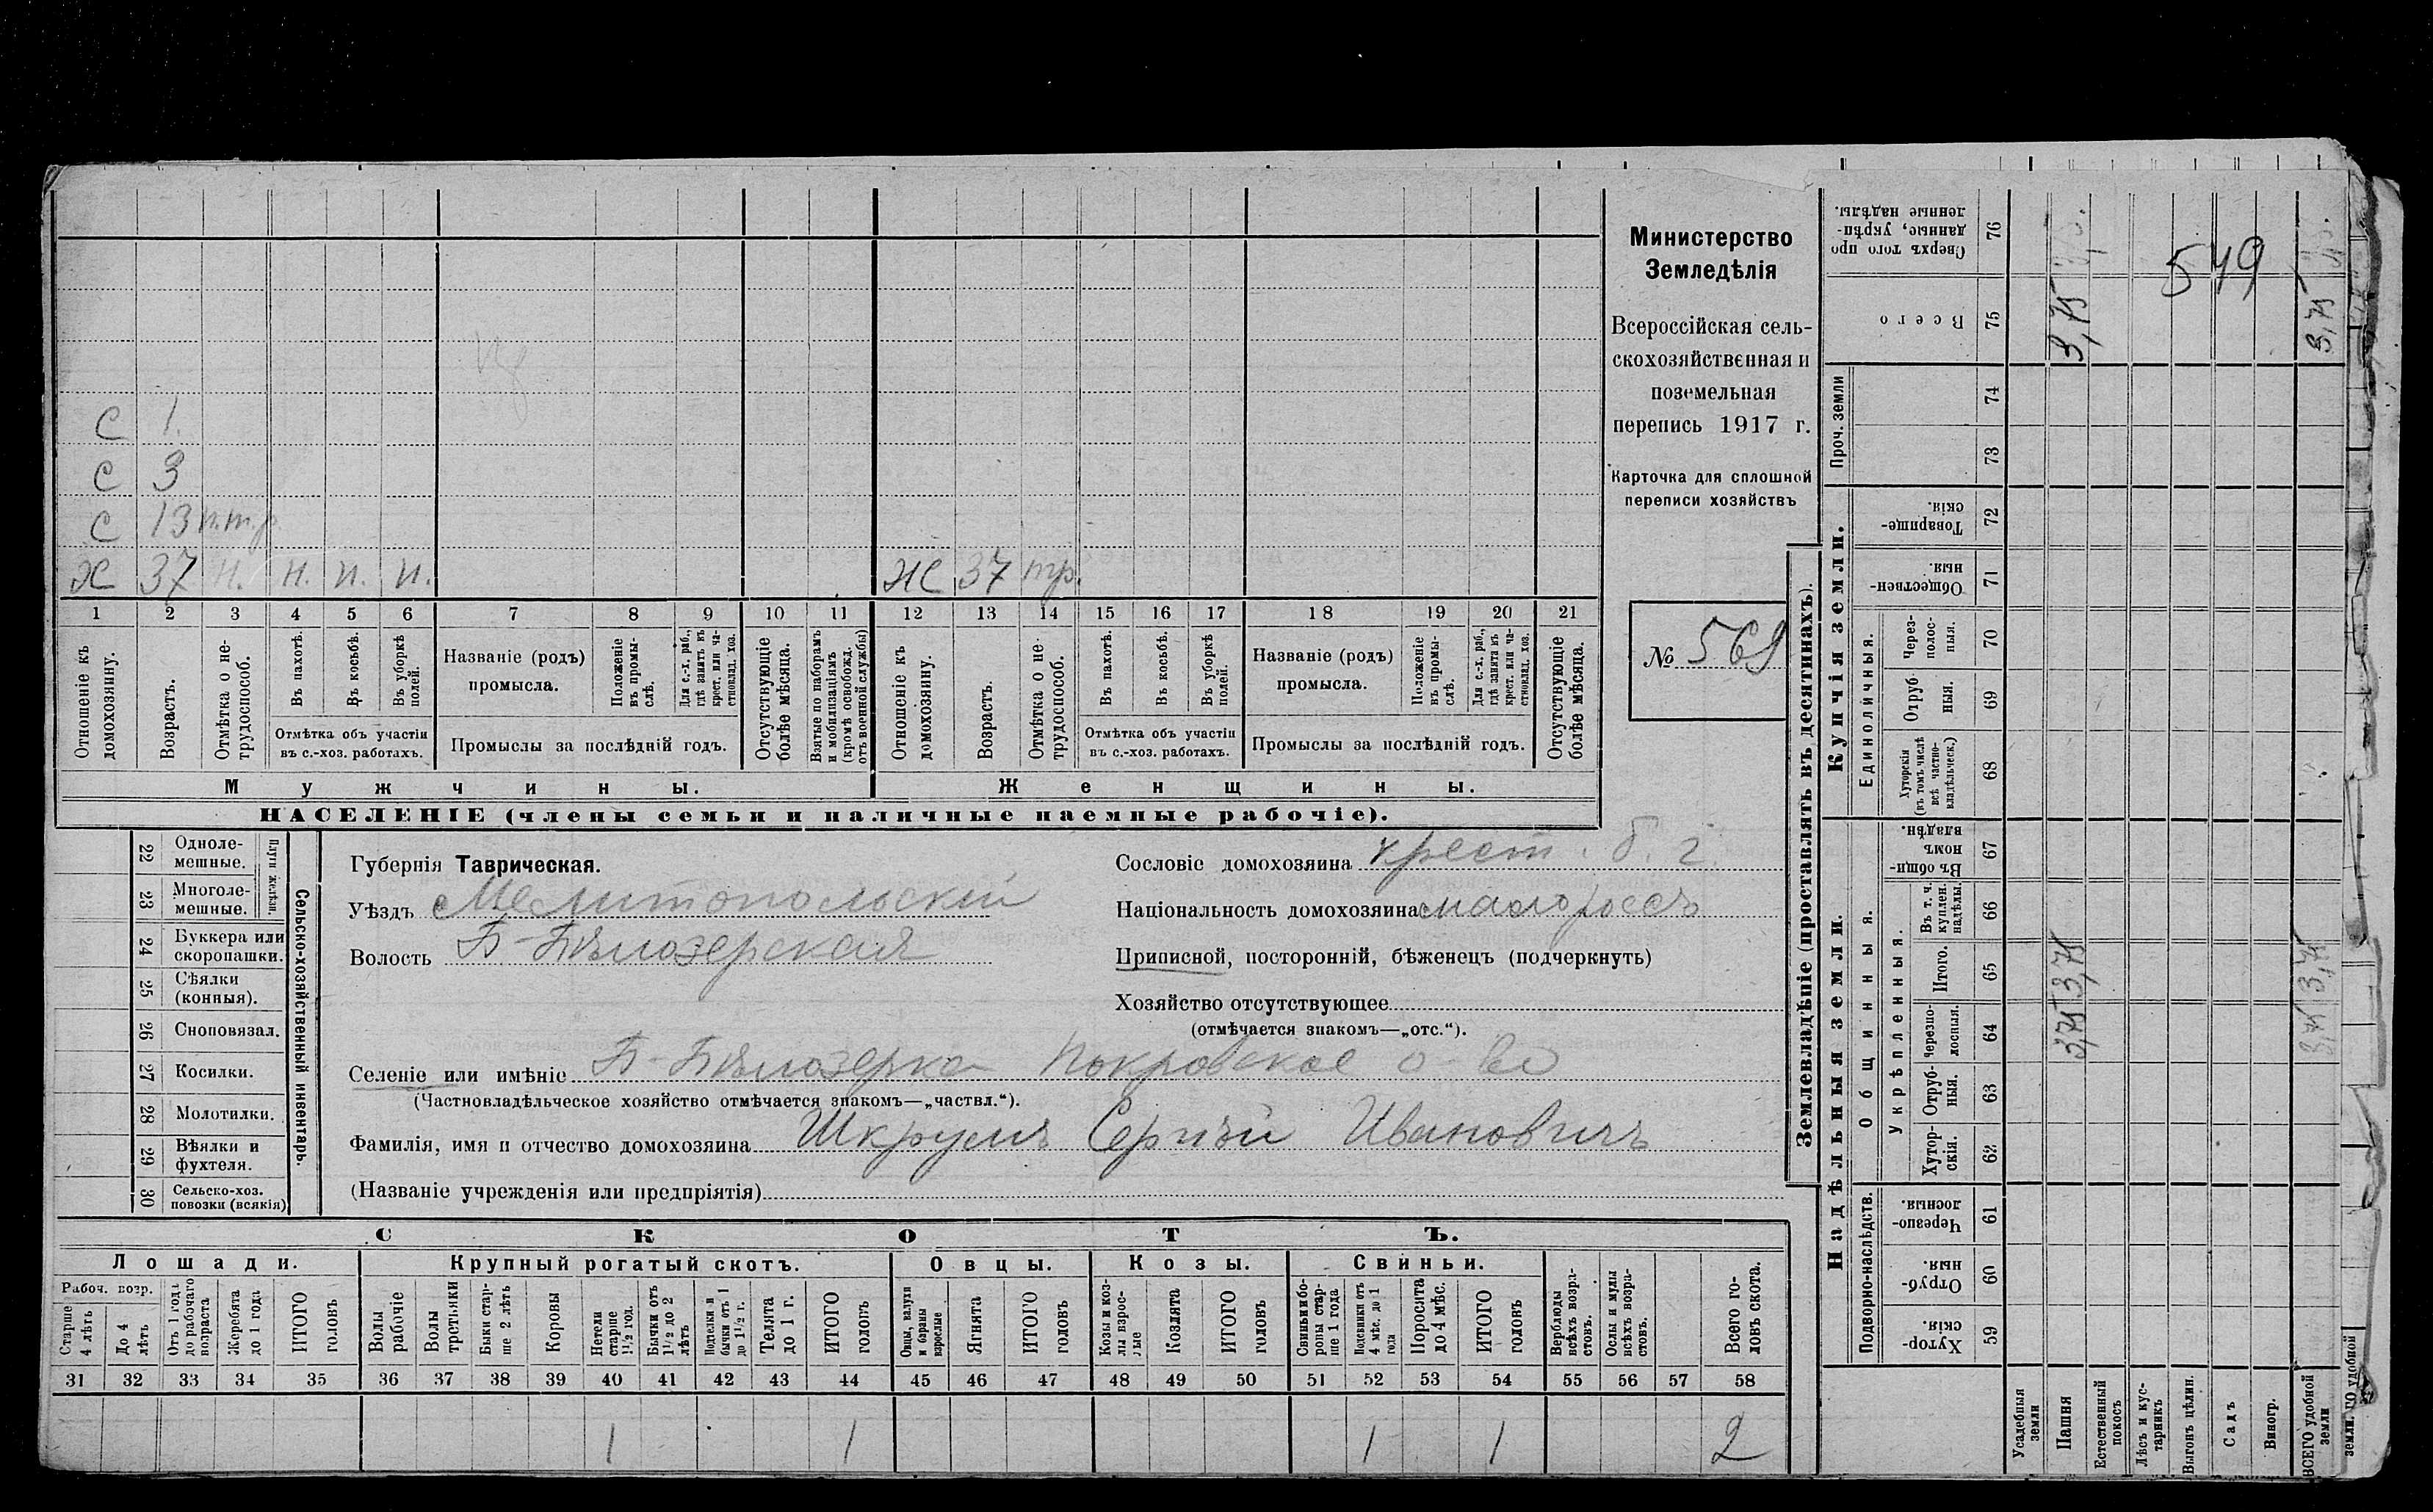 С 1.
С 3
С 13 п.тр.
Х 37 н. н. п. п. Ж 37 тр.
1 2 3 4 5 6 7 8 9 10 11 12 13 14 15 16 17 18 19 20 21
Отношеніе къ домохозяину.
Возрастъ.
Отмѣтка о нетрудоспособ.
Въ пахотѣ.
Въ косьбѣ.
Въ уборкѣ полей.
Отмѣтка объ участіи
въ с.-хоз. работахъ.
Названіе (родъ)
промысла.
Положеніе въ промыслѣ.
Для с.-х. раб., гдѣ занятъ въ крест. или частновлад. хоз.
Промыслы за послѣдній годъ.
Отсутствующіе болѣе мѣсяца.
Взятые по наборамъ и мобилизаціямъ (кромѣ освобожд. отъ военной службы)
Отношеніе къ домохозяину.
Возрастъ.
Отмѣтка о нетрудоспособ.
Въ пахотѣ.
Въ косьбѣ.
Въ уборкѣ полей.
Отмѣтка объ участіи
въ с.-хоз. работахъ.
Названіе (родъ)
промысла.
Положеніе въ промыслѣ.
Для с.-х. раб., гдѣ заняты въ крест. или частновлад. хоз.
Промыслы за послѣдній годъ.
Отсутствующіе болѣе мѣсяца.
Мужчины. Женщины.
НАСЕЛЕНІЕ (члены семьи и наличные наемные рабочіе).
Министерство
Земледѣлія
Всероссійская сель-
скохозяйственная и
поземельная
перепись 1917 г.
Карточка для сплошной
переписи хозяйствъ
№ 569
22 Одноле-
мешные.
23 Многоле-
мешные.
Плуги желѣзн.
24 Буккера или
скоропашки.
25 Сѣялки
(конныя).
26 Сноповязал.
27 Косилки.
28 Молотилки.
29 Вѣялки и
фухтеля.
30 Сельско-хоз.
повозки (всякія)
Сельско-хозяйственный инвентарь.
Губернія Таврическая.
Уѣздъ Мелитопольскій
Волость Б-Бѣлозерская
Сословіе домохозяина крест. б. г.
Національность домохозяина малороссъ
Приписной, посторонній, бѣженецъ (подчеркнуть)
Хозяйство отсутствующее
(отмѣчается знакомъ—„отс.“).
Селеніе или имѣніе Б-Бѣлозерка Покровское о-во
(Частновладѣльческое хозяйство отмѣчается знакомъ—„частвл.“).
Фамилія, имя и отчество домохозяина Шкрумъ Сергѣй Ивановичъ
(Названіе учрежденія или предпріятія)
СКОТЪ.
Лошади. Крупный рогатый скотъ. Овцы. Козы. Свиньи.
Рабоч. возр.
Старше 4 лѣтъ
До 4 лѣтъ
Отъ 1 года до рабочаго возраста
Жеребята до 1 года
ИТОГО головъ
Волы рабочіе
Волы третьяки
Быки старше 2 лѣтъ
Коровы
Нетели старше 1½ год.
Бычки отъ 1½ до 2 лѣтъ
Подтелки и бычки отъ 1 до 1½ г.
Телята до 1 г.
ИТОГО головъ
Овцы, валухи и бараны взрослые
Ягнята
ИТОГО головъ
Козы и козлы взрослые
Козлята
ИТОГО головъ
Свиньи боровы старше 1 года
Подсвинки отъ 4 мѣс. до 1 года
Поросята до 4 мѣс.
ИТОГО головъ
Верблюды всѣхъ возрастовъ.
Ослы и мулы всѣхъ возрастовъ.
Всего головъ скота.
31 32 33 34 35 36 37 38 39 40 41 42 43 44 45 46 47 48 49 50 51 52 53 54 55 56 57 58
1 1 1 1 2
Землевладѣніе (проставлять въ десятинахъ).
Надѣльныя земли. Купчія земли. Проч. земли
Подворно-наслѣдств.
Общинныя.
Укрѣпленныя.
Единоличныя.
Хуторскія. 59
Отрубныя. 60
Черезполосныя. 61
Хуторскія. 62
Отрубныя. 63
Черезполосныя. 64
Итого. 65
Въ т. ч. куплен. надѣлы. 66
Въ общинномъ владѣн. 67
Хуторскія (въ томъ числѣ всѣ частновладѣльческ.) 68
Отрубныя. 69
Черезполосныя. 70
Общественныя. 71
Товарищескія. 72
73
74
Всего 75
Сверхъ того проданные, укрѣпленные надѣлы. 76
Усадебныя земли
Пашня 3,75 3,75 3,75
Естественный покосъ
Лѣсъ и кустарникъ
Выгонъ цѣлин.
Садъ
Виногр.
ВСЕГО удобной земли 3,75 3,75 3,75
549